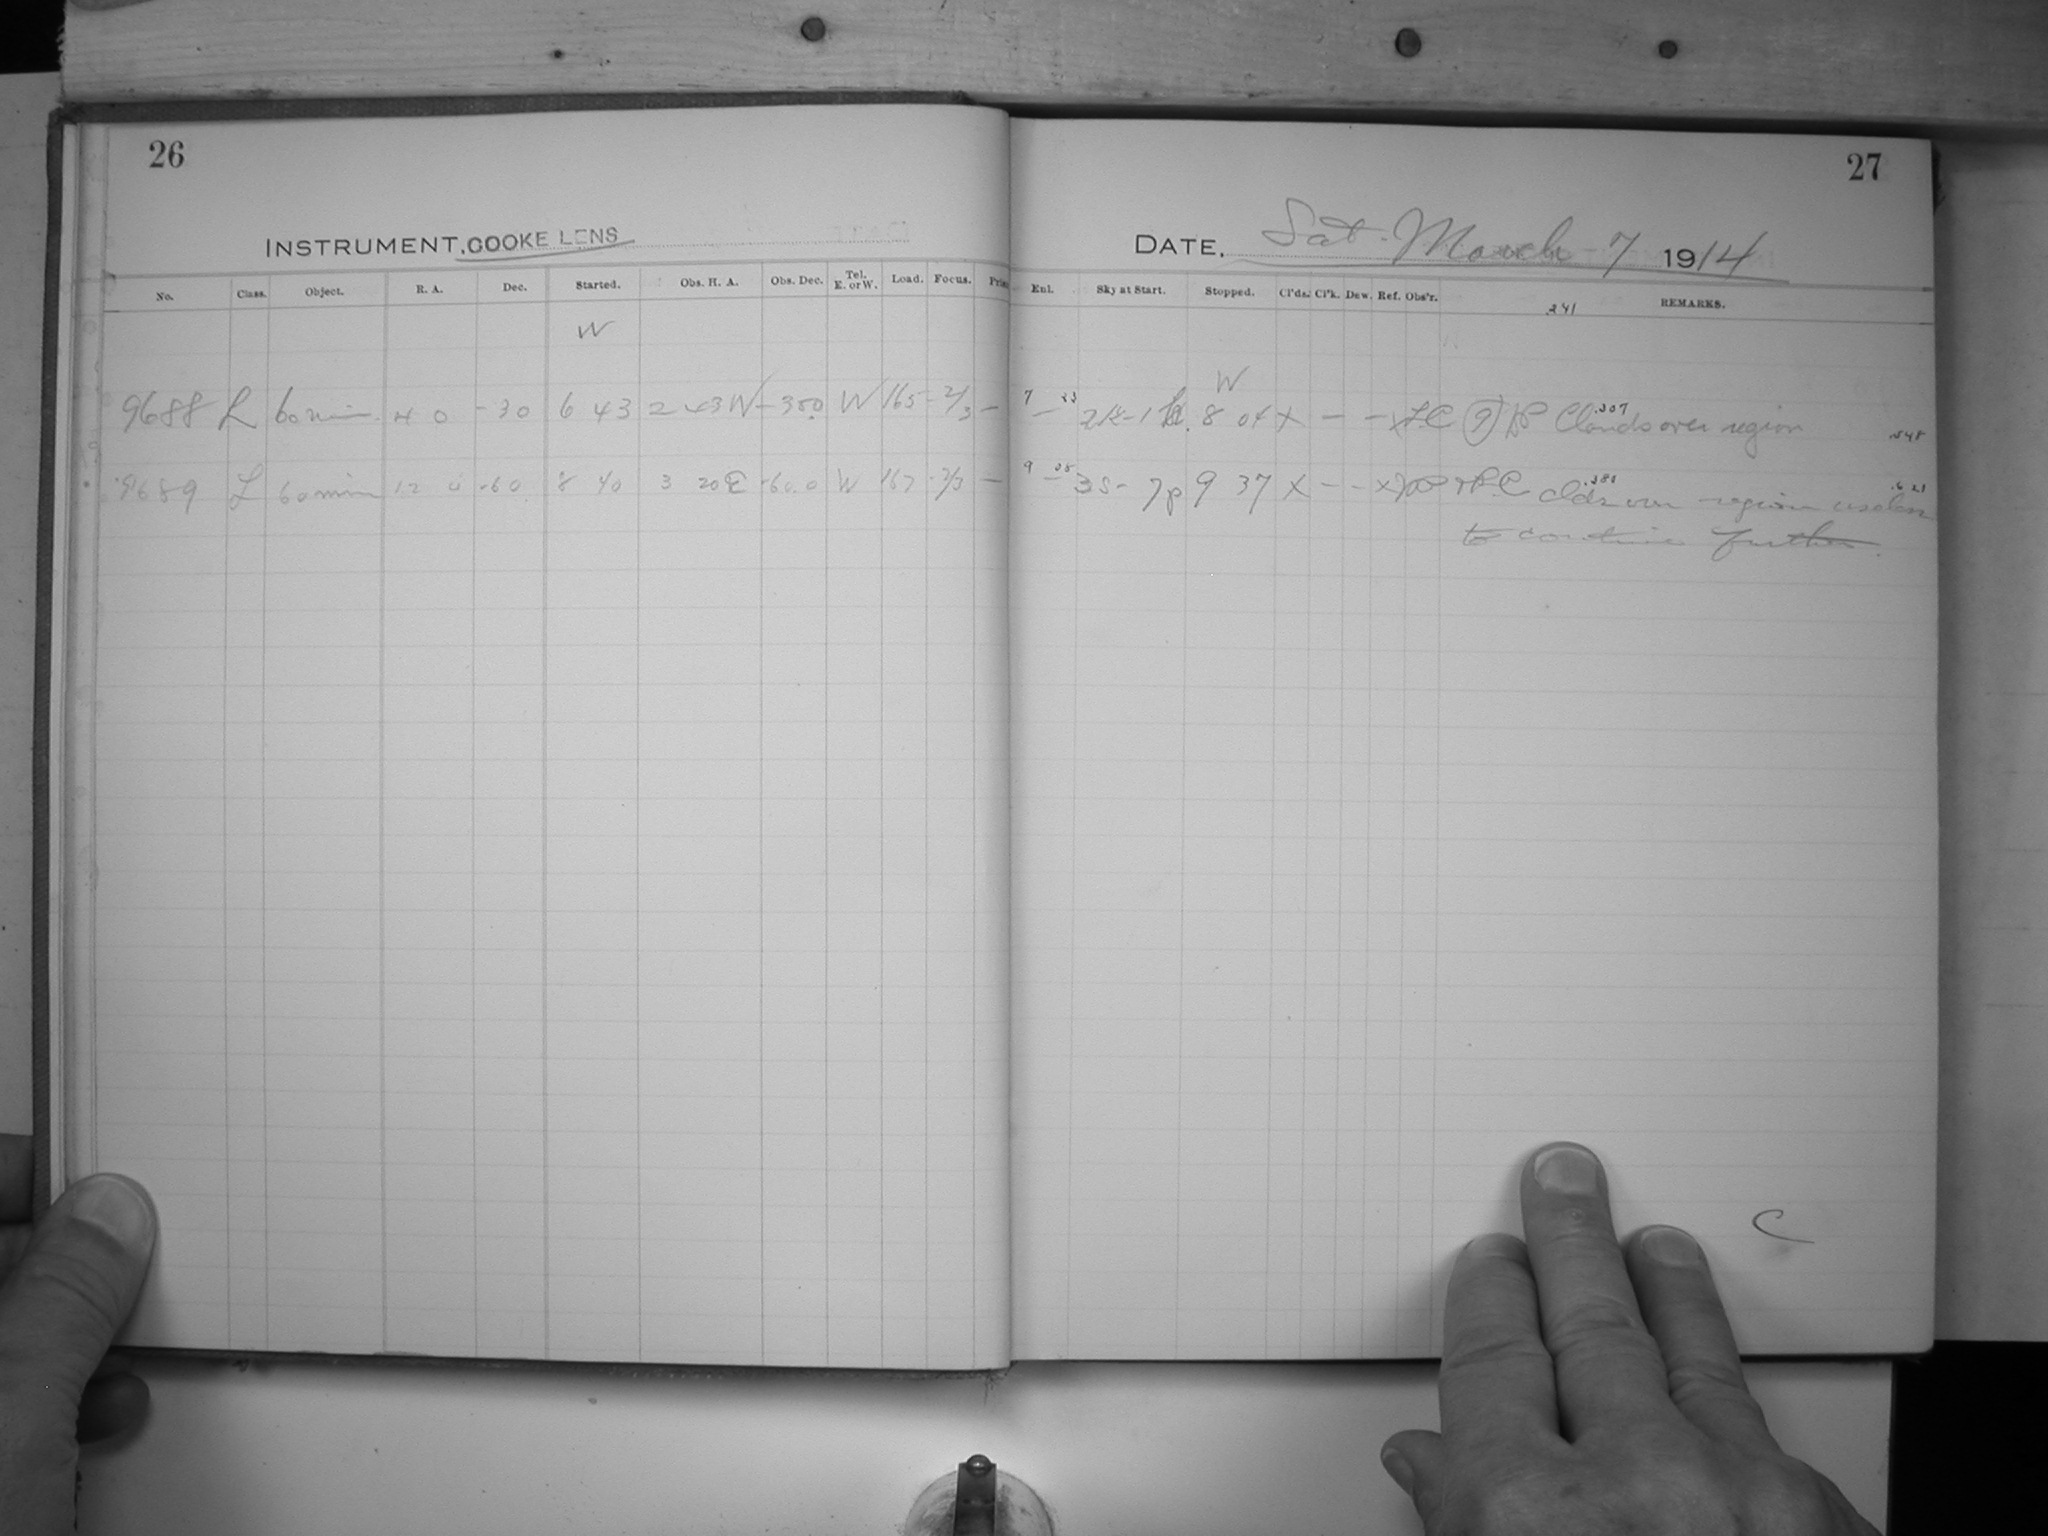 26
INSTRUMENT, COOKE LENS
No. Class. Object. R. A. Dec. Started. Obs. H. A. Obs. Dec. Tel. E. or W. Load. Focus.
W
9688 L 60 min. 4 0 -30 6 43 2 43 W -30.0 W 165 -2/3 —
9689 L 60 min 12 0 -60 8 40 3 20 E -60.0 W 167 -2/3 —
27
DATE, Sat. March 7 1914
Exl. Sky at Start. Stopped. Cl'ds. Cl'k. Dew. Ref. Obs'r. REMARKS.
.241
W
7 — 33 8 04 X — — X Clouds over region .307 .548
9 — 08 9 37 X — — X clds over region useless .380 .621
to continue further.
C